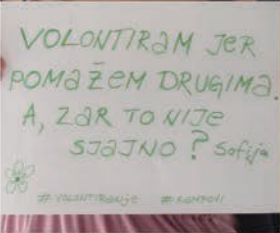 VOLONTIRAM JER
POMAŽEM DRUGIMA.
A, ZAR TO NIJE
SJAJNO? Sofija
#VOLONTIRANJE #KAMPOVI